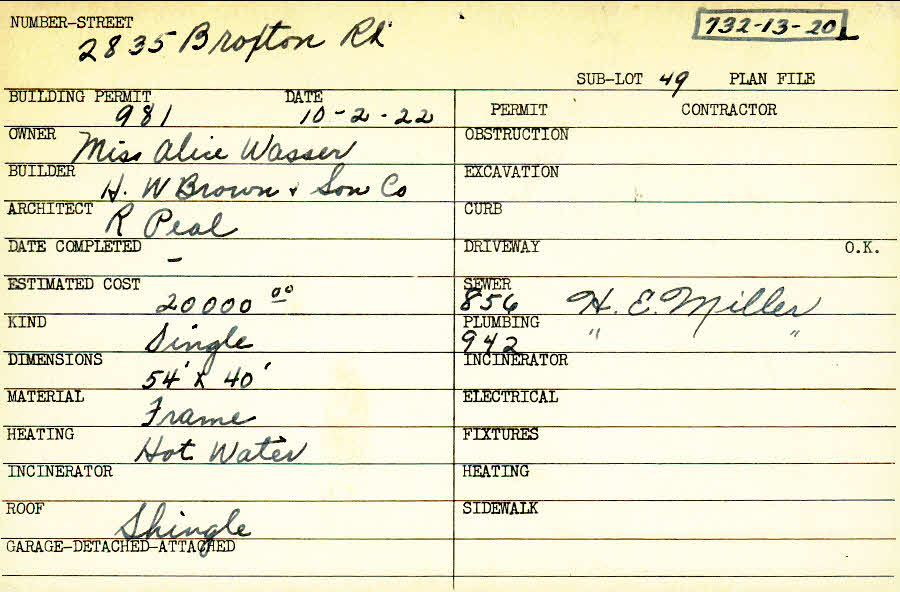 NUMBER-STREET
2835 Broxton Rd
732-13-20
SUB-LOT 49 PLAN FILE
BUILDING PERMIT DATE
981 10-2-22
PERMIT CONTRACTOR
OWNER Miss Alice Wasser
OBSTRUCTION
BUILDER H. W Brown & Son Co
EXCAVATION
ARCHITECT R Peal
CURB
DATE COMPLETED -
DRIVEWAY O.K.
ESTIMATED COST 20000 00
SEWER
856 H. E. Miller
KIND Single
PLUMBING
942 " "
DIMENSIONS 54' X 40'
INCINERATOR
MATERIAL Frame
ELECTRICAL
HEATING Hot Water
FIXTURES
INCINERATOR
HEATING
ROOF Shingle
SIDEWALK
GARAGE-DETACHED-ATTACHED